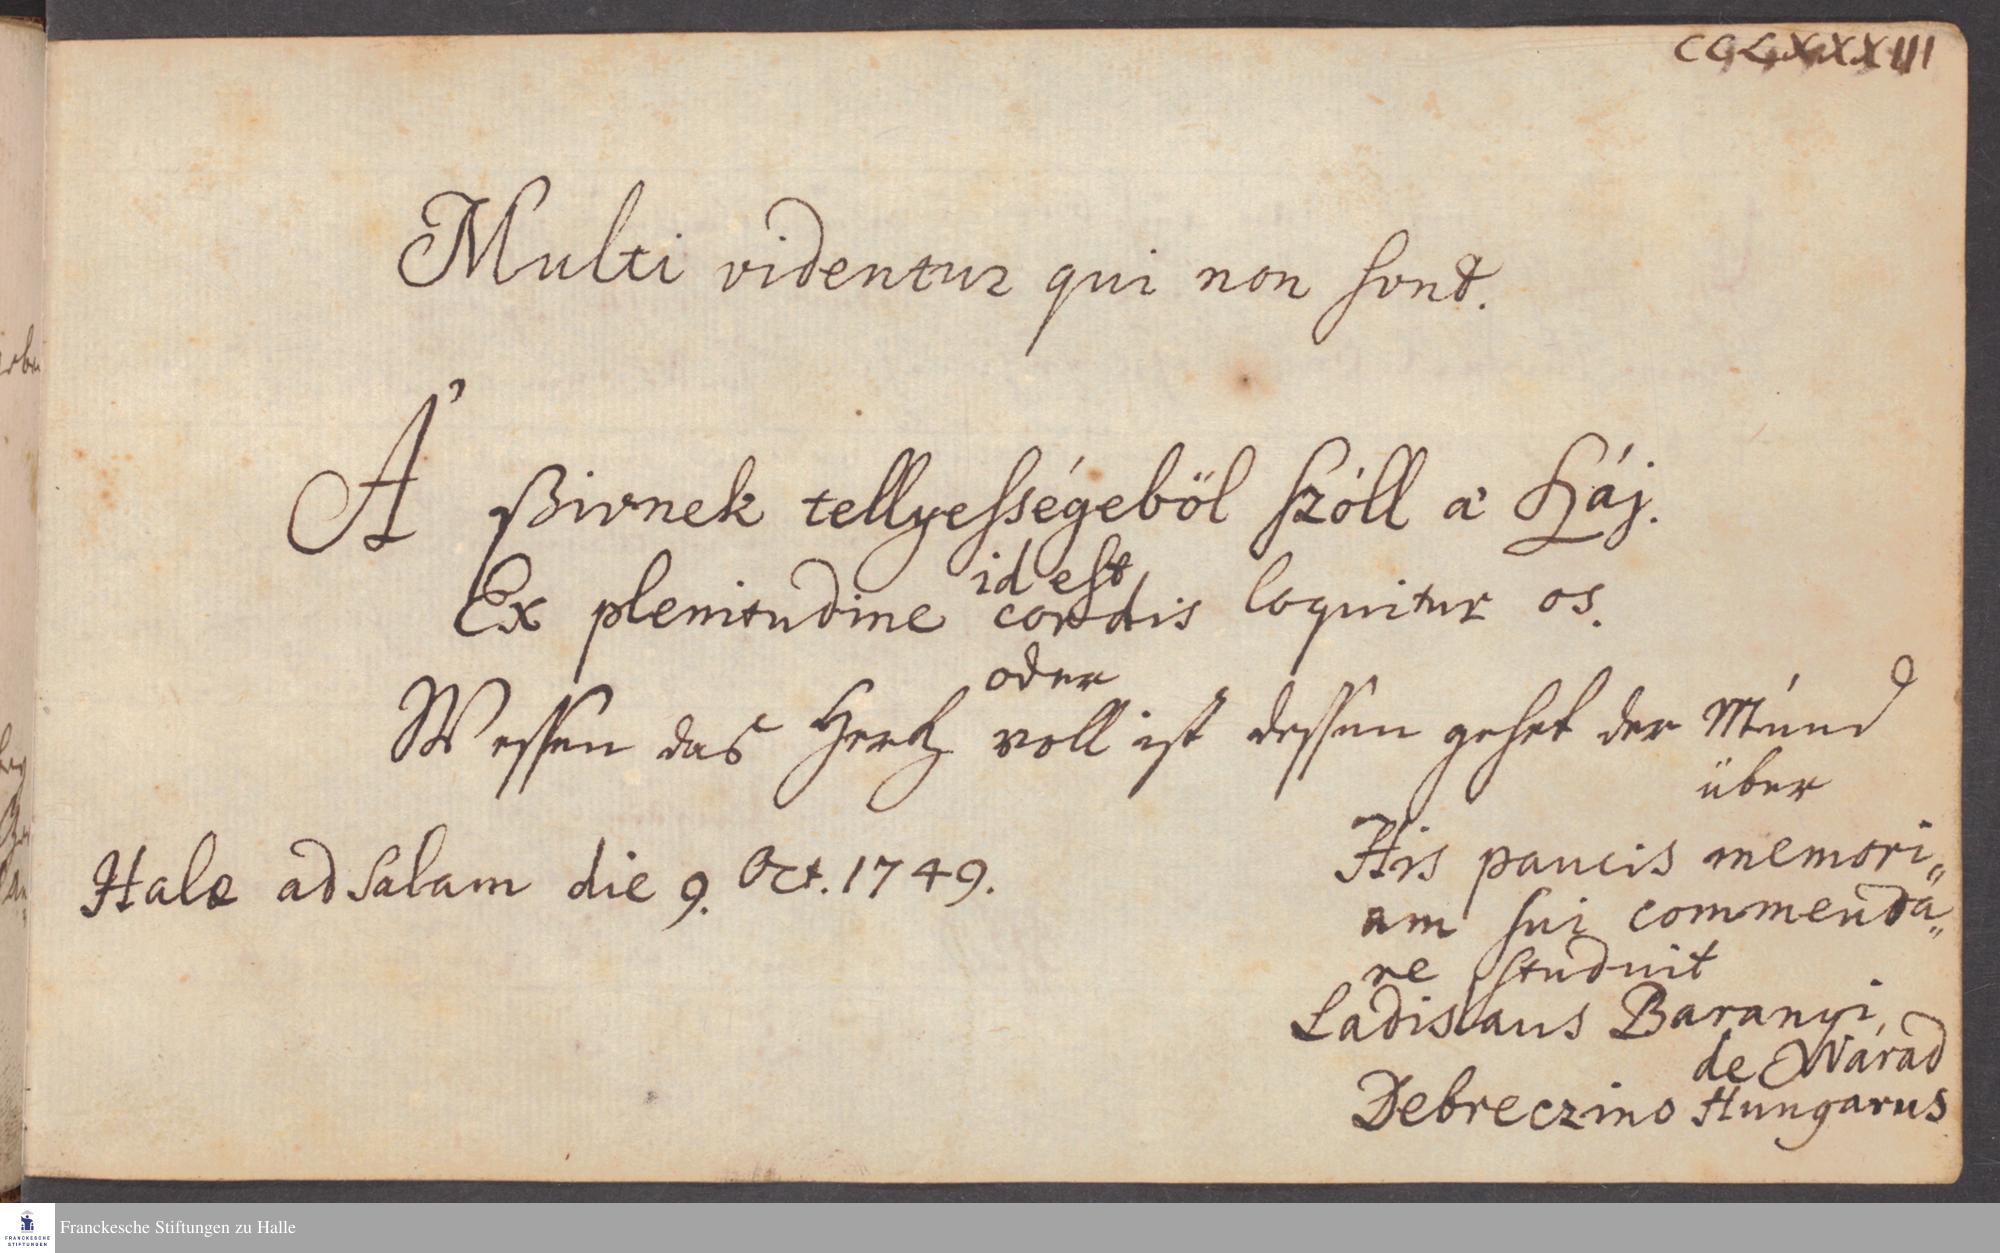 CCLXXXIII
Multi videntur qui non sunt.
A' ßivnek tellyességeböl szóll a' Száj.
id est
Ex plenitudine cordis loquitur os.
oder
Wessen das Hertz voll ist dessen gehet der Mund
über
Halæ ad Salam die 9. Oct. 1749.
His paucis memori„
am sui commenda„
re studuit
Ladislaus Baranyi,
de Wárad
Debreczino Hungarus
FRANCKESCHE
STIFTUNGEN
Franckesche Stiftungen zu Halle